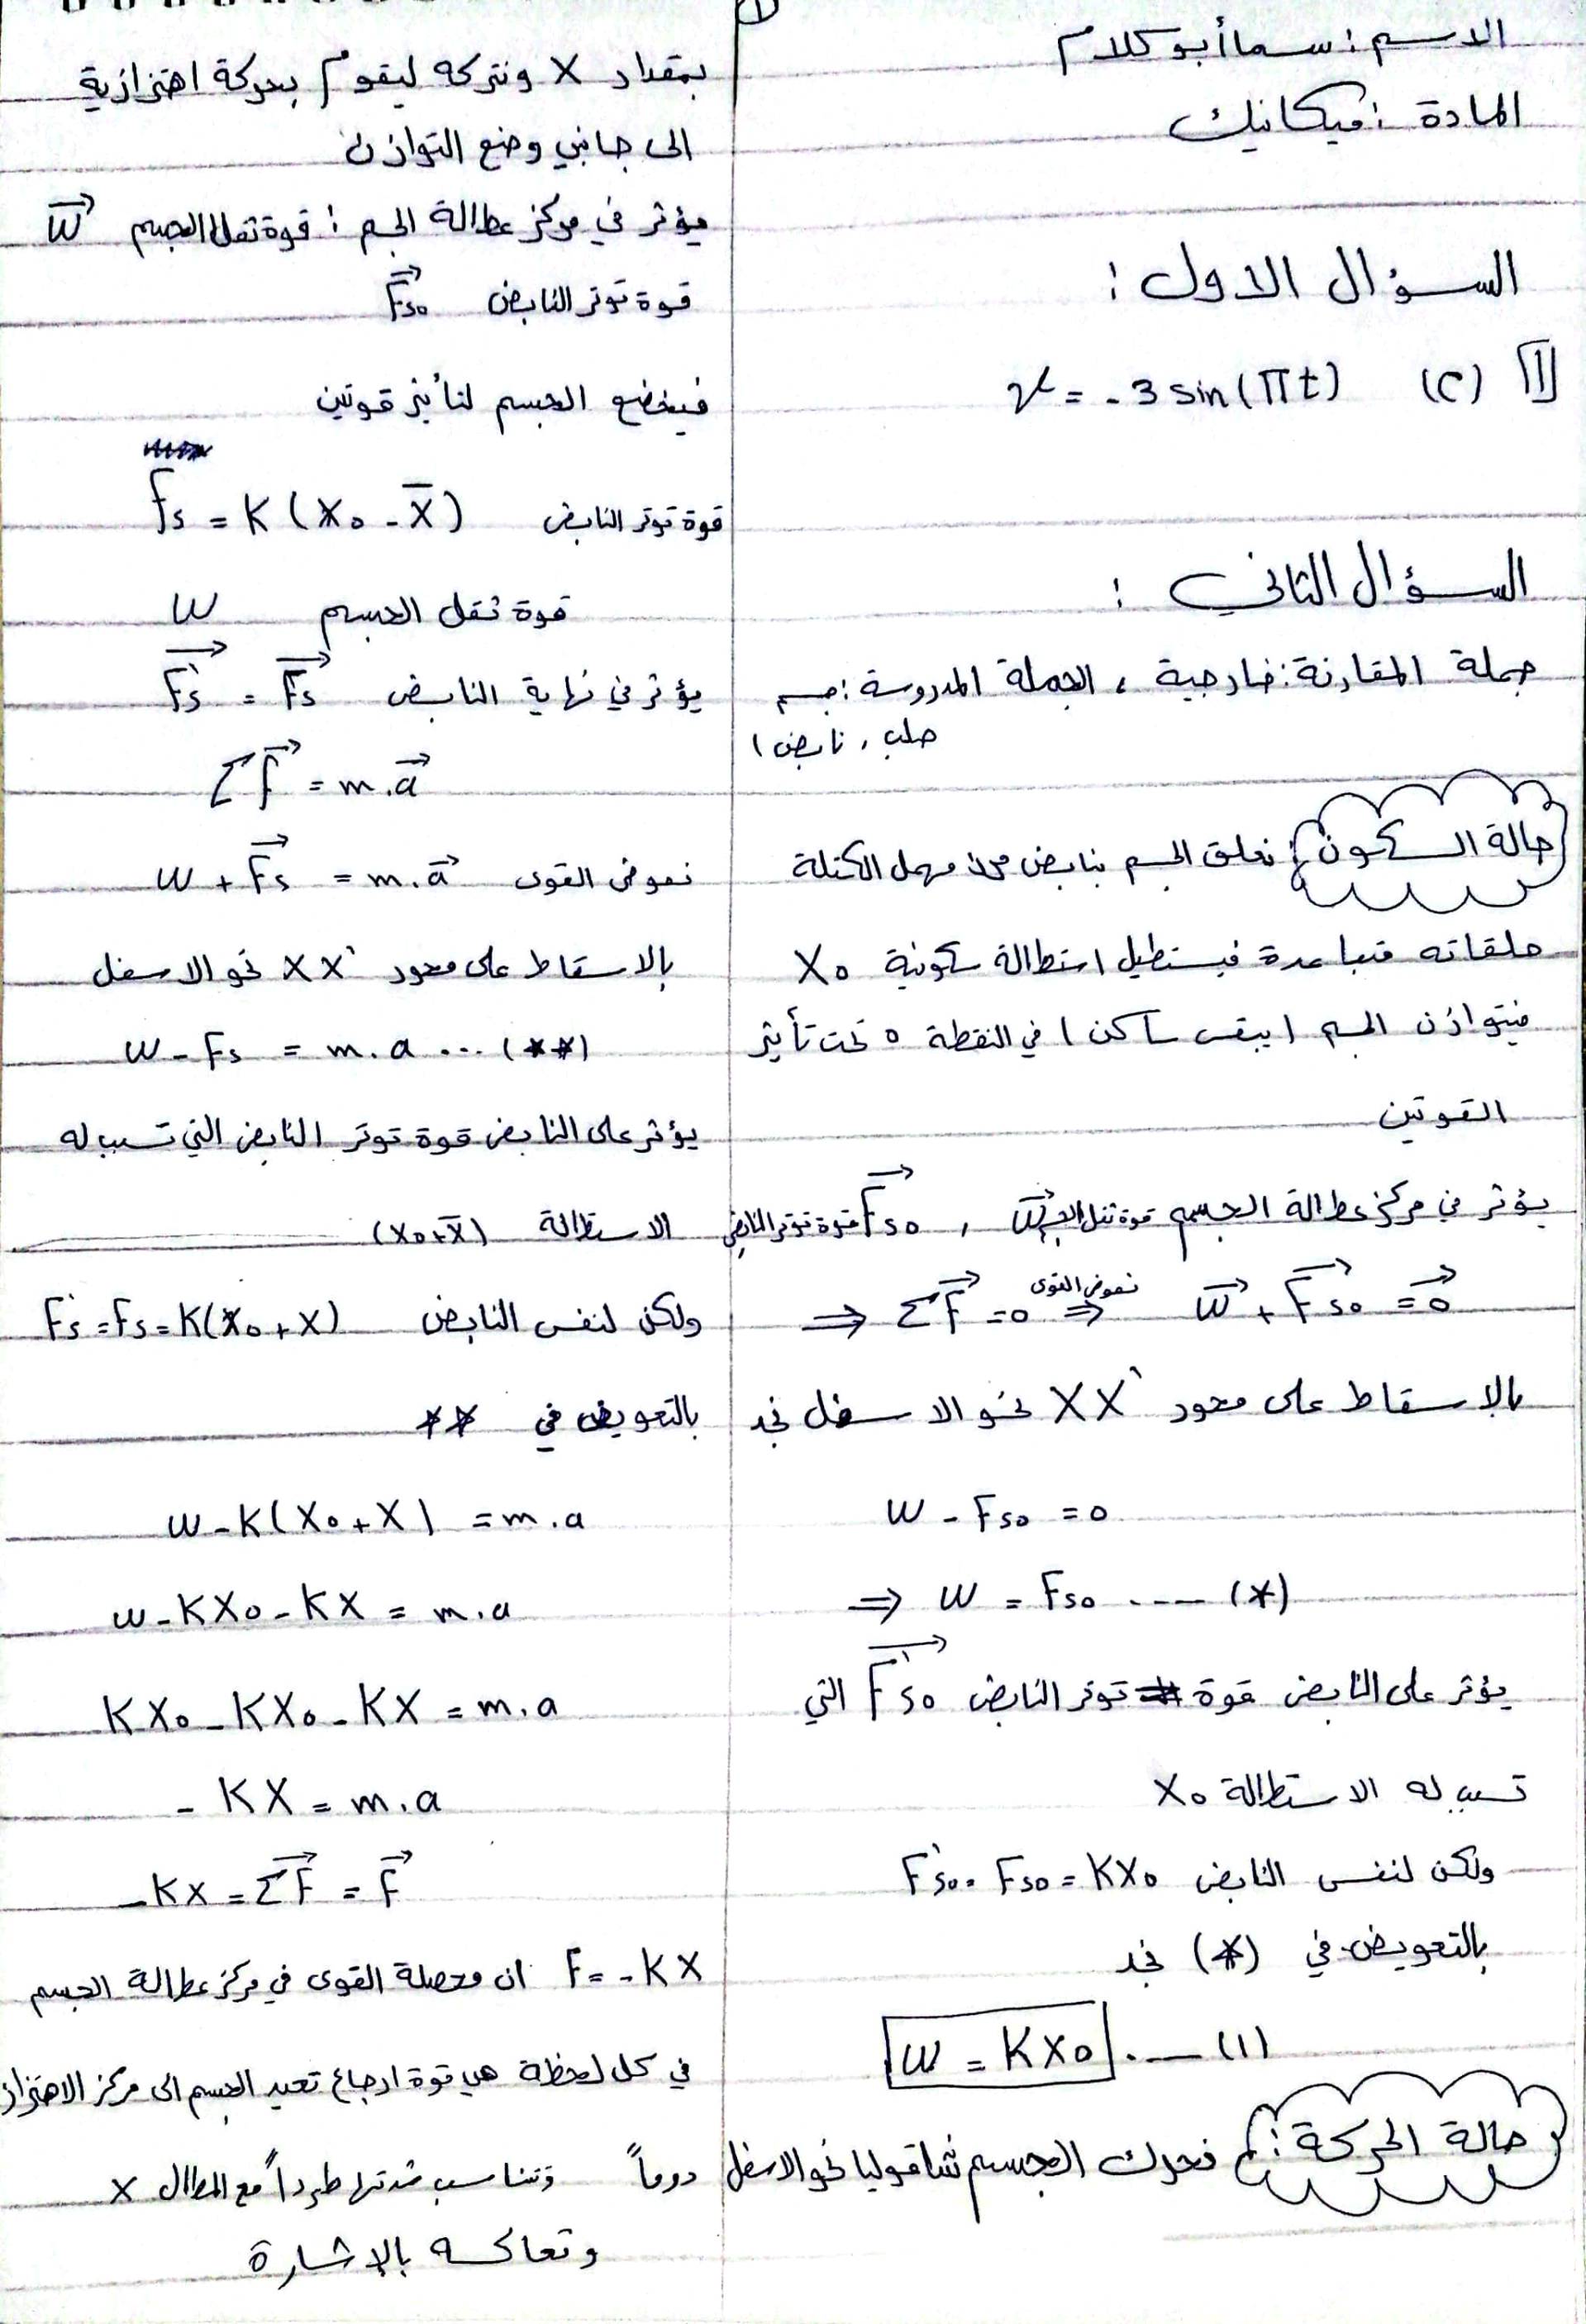 الاسم : سما أبو كلام
المادة : ميكانيك
السؤال الاول :
1 (c) v = - 3 sin (πt)
السؤال الثاني :
جملة المقارنة : خارجية ، الجملة المدروسة : جسم
صلب ، نابض )
حالة السكون : نعلق الجسم بنابض مرن مهمل الكتلة
حلقاته متباعدة فيستطيل استطالة سكونية X₀
فيتوازن الجسم ( يبقى ساكن ) في النقطة o تحت تأثير
القوتين
يؤثر في مركز عطالة الجسم قوة ثقل الجسم W⃗ ، F⃗s₀ قوة توتر النابض
⇒ ΣF⃗ = 0 نعوض القوى ⇒ W⃗ + F⃗s₀ = 0⃗
بالإسقاط على محور XX` نحو الاسفل نجد
W - Fs₀ = 0
⇒ W = Fs₀ .... (*)
يؤثر على النابض قوة توتر النابض F⃗`s₀ التي
تسبب له الاستطالة X₀
ولكن لنفس النابض F`s₀ = Fs₀ = KX₀
بالتعويض في (*) نجد
W = KX₀ .... (1)
حالة الحركة : نحرك الجسم شاقوليا نحو الاسفل
1
بمقدار X ونتركه ليقوم بحركة اهتزازية
الى جانبي وضع التوازن
يؤثر في مركز عطالة الجسم : قوة ثقل الجسم W⃗
قوة توتر النابض F⃗s₀
فيخضع الجسم لتأثير قوتين
قوة توتر النابض Fs = K (X₀ - X̄)
قوة ثقل الجسم W
يؤثر في نهاية النابض F⃗`s = F⃗s
ΣF⃗ = m.a⃗
نعوض القوى W + F⃗s = m.a⃗
بالاسقاط على محور XX` نحو الاسفل
W - Fs = m.a ... (**)
يؤثر على النابض قوة توتر النابض التي تسبب له
الاستطالة (X₀+X̄)
ولكن لنفس النابض F`s = Fs = K(X₀ + X)
بالتعويض في **
W - K(X₀ + X) = m.a
W - KX₀ - KX = m.a
KX₀ - KX₀ - KX = m.a
- KX = m.a
-KX = ΣF⃗ = F⃗
F = - KX ان محصلة القوى في مركز عطالة الجسم
في كل لحظة هي قوة ارجاع تعيد الجسم الى مركز الاهتزاز
دوماً وتتناسب شدتها طرداً مع المطال X
وتعاكسه بالإشارة